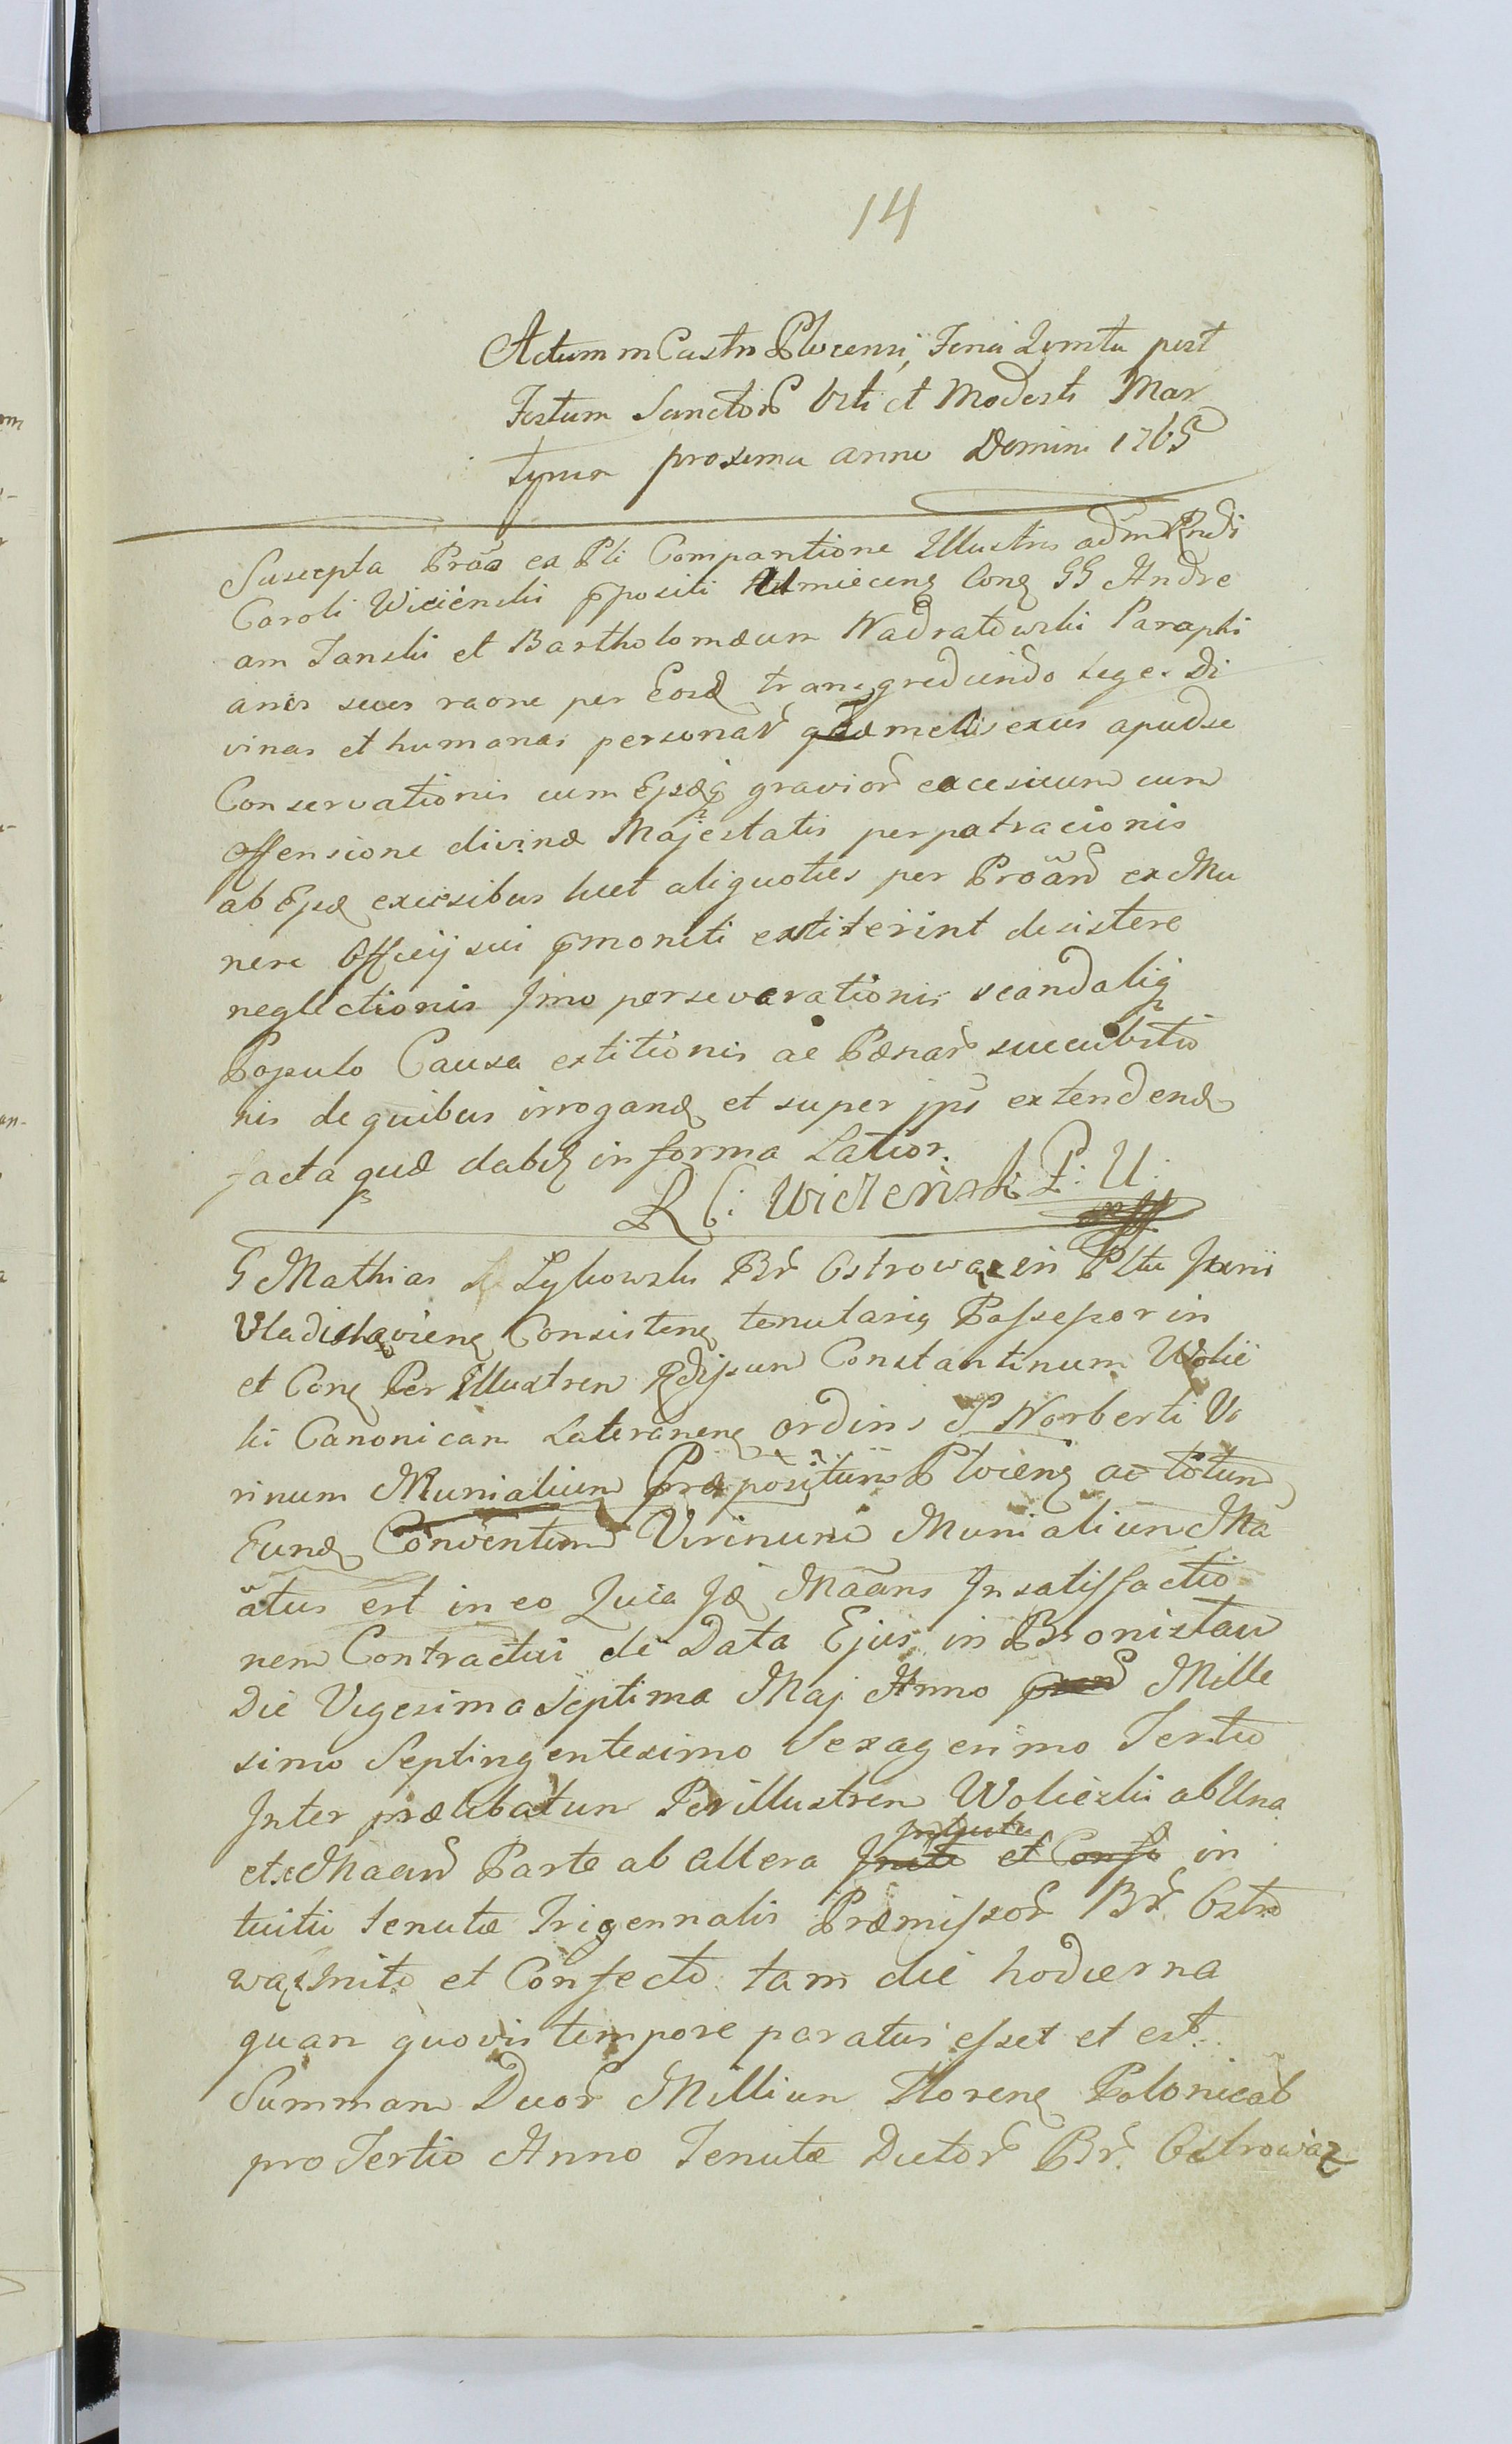 14
Actum in Castro Plocensi, Feria Quinta post
Festum Sanctor Viti et Modesti Mar
tyrum proxima anno Domini 1765
Suscepta Proa ex Pli Comparitione Illustris adm Rndi
Caroli Wicienski ppositi Con GG Andre
am Janski et Bartholomæum Nadratowski Paraphi
anos suos raone per Eosd transgrediendo Leges Di
vinas et humanas personar exus apud se
Conservationis cum Epsdq gravior excesiuum cum
offensione divinæ Majestatis perpatracionis
ab Epsd excesibus licet aliquoties per Proand ex Mu
nere Officij sui pmoniti extiterint desistere
neglectionis Jmo perseverationis scandaliq
Populo Causa extitionis ac Pænar succubitio
nis de quibus irrogand et super jps extendend
facta quæ dabit in forma Latior.
R C: Wicienski P: U:
G Mathias Lykowski Br Ostrowaz in Pltu Juni
Vladislavien Consisten tenutariq Possessor in
et Con Per Illustrem Rdissum Constantinum Wolic
ki Canonicam Lateranen ordinis S Norberti Vi
rinum Munialium Præpositum Plocien ac totum
Eund Conventum Virinum Munialium Ma
atus est in eo Quia Jd Maans In satisfactio
nem Contractus de Data Ejus in Bronislaw
Die Vigesima Septima Maj Anno Mille
simo Septingentesimo Sexagesimo Tertio
Inter prælibatum Perillustrem Wolicki ab Una
et Maand Parte ab altera Inito et Confo in
tuitu tenutæ Trigennalis Præmissor Br Ostro
waz Inito et Confecto tam die hodierna
quam quovis tempore paratus esset et est
Summam Duor Millium Floren Polonical
pro Tertio Anno Tenutæ Dictor Br. Ostrowaz